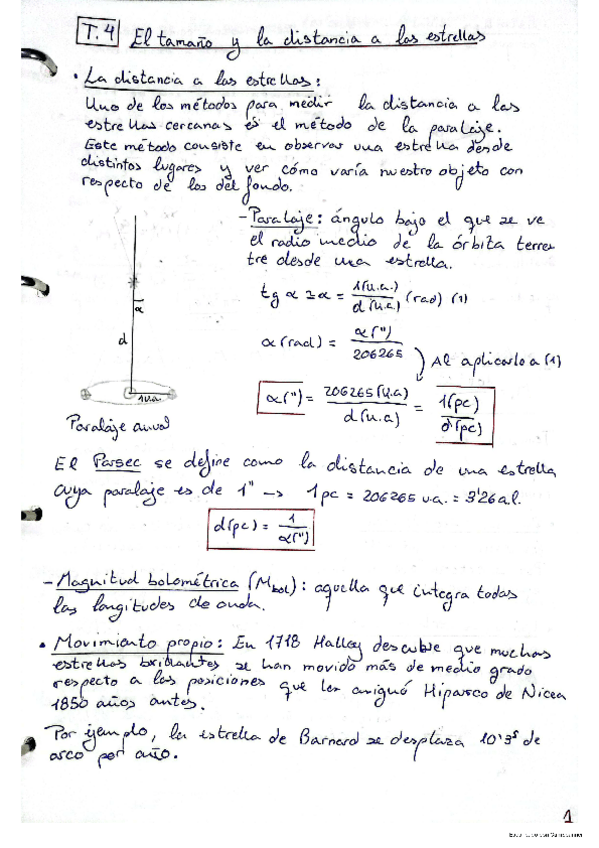 T.4 El tamaño y la distancia a las estrellas
• La distancia a las estrellas:
Uno de los métodos para medir la distancia a las
estrellas cercanas es el método de la paralaje.
Este método consiste en observar una estrella desde
distintos lugares y ver cómo varía nuestro objeto con
respecto de los del fondo.
- Paralaje: ángulo bajo el que se ve
el radio medio de la órbita terres
tre desde una estrella.
tg α ≃ α = 1(u.a.) / d(u.a.) (rad) (1)
α(rad) = α(") / 206265
Al aplicarlo a (1)
α(") = 206265(u.a) / d(u.a) = 1(pc) / d(pc)
α
d
1u.a.
Paralaje anual
El Parsec se define como la distancia de una estrella
cuya paralaje es de 1" → 1pc = 206265 u.a. = 3'26 a.l.
d(pc) = 1 / α(")
- Magnitud bolométrica (Mbol): aquella que integra todas
las longitudes de onda.
• Movimiento propio: En 1718 Halley descubre que muchas
estrellas brillantes se han movido más de medio grado
respecto a las posiciones que les asignó Hiparco de Nicea
1850 años antes.
Por ejemplo, la estrella de Barnard se desplaza 10'3s de
arco por año.
1